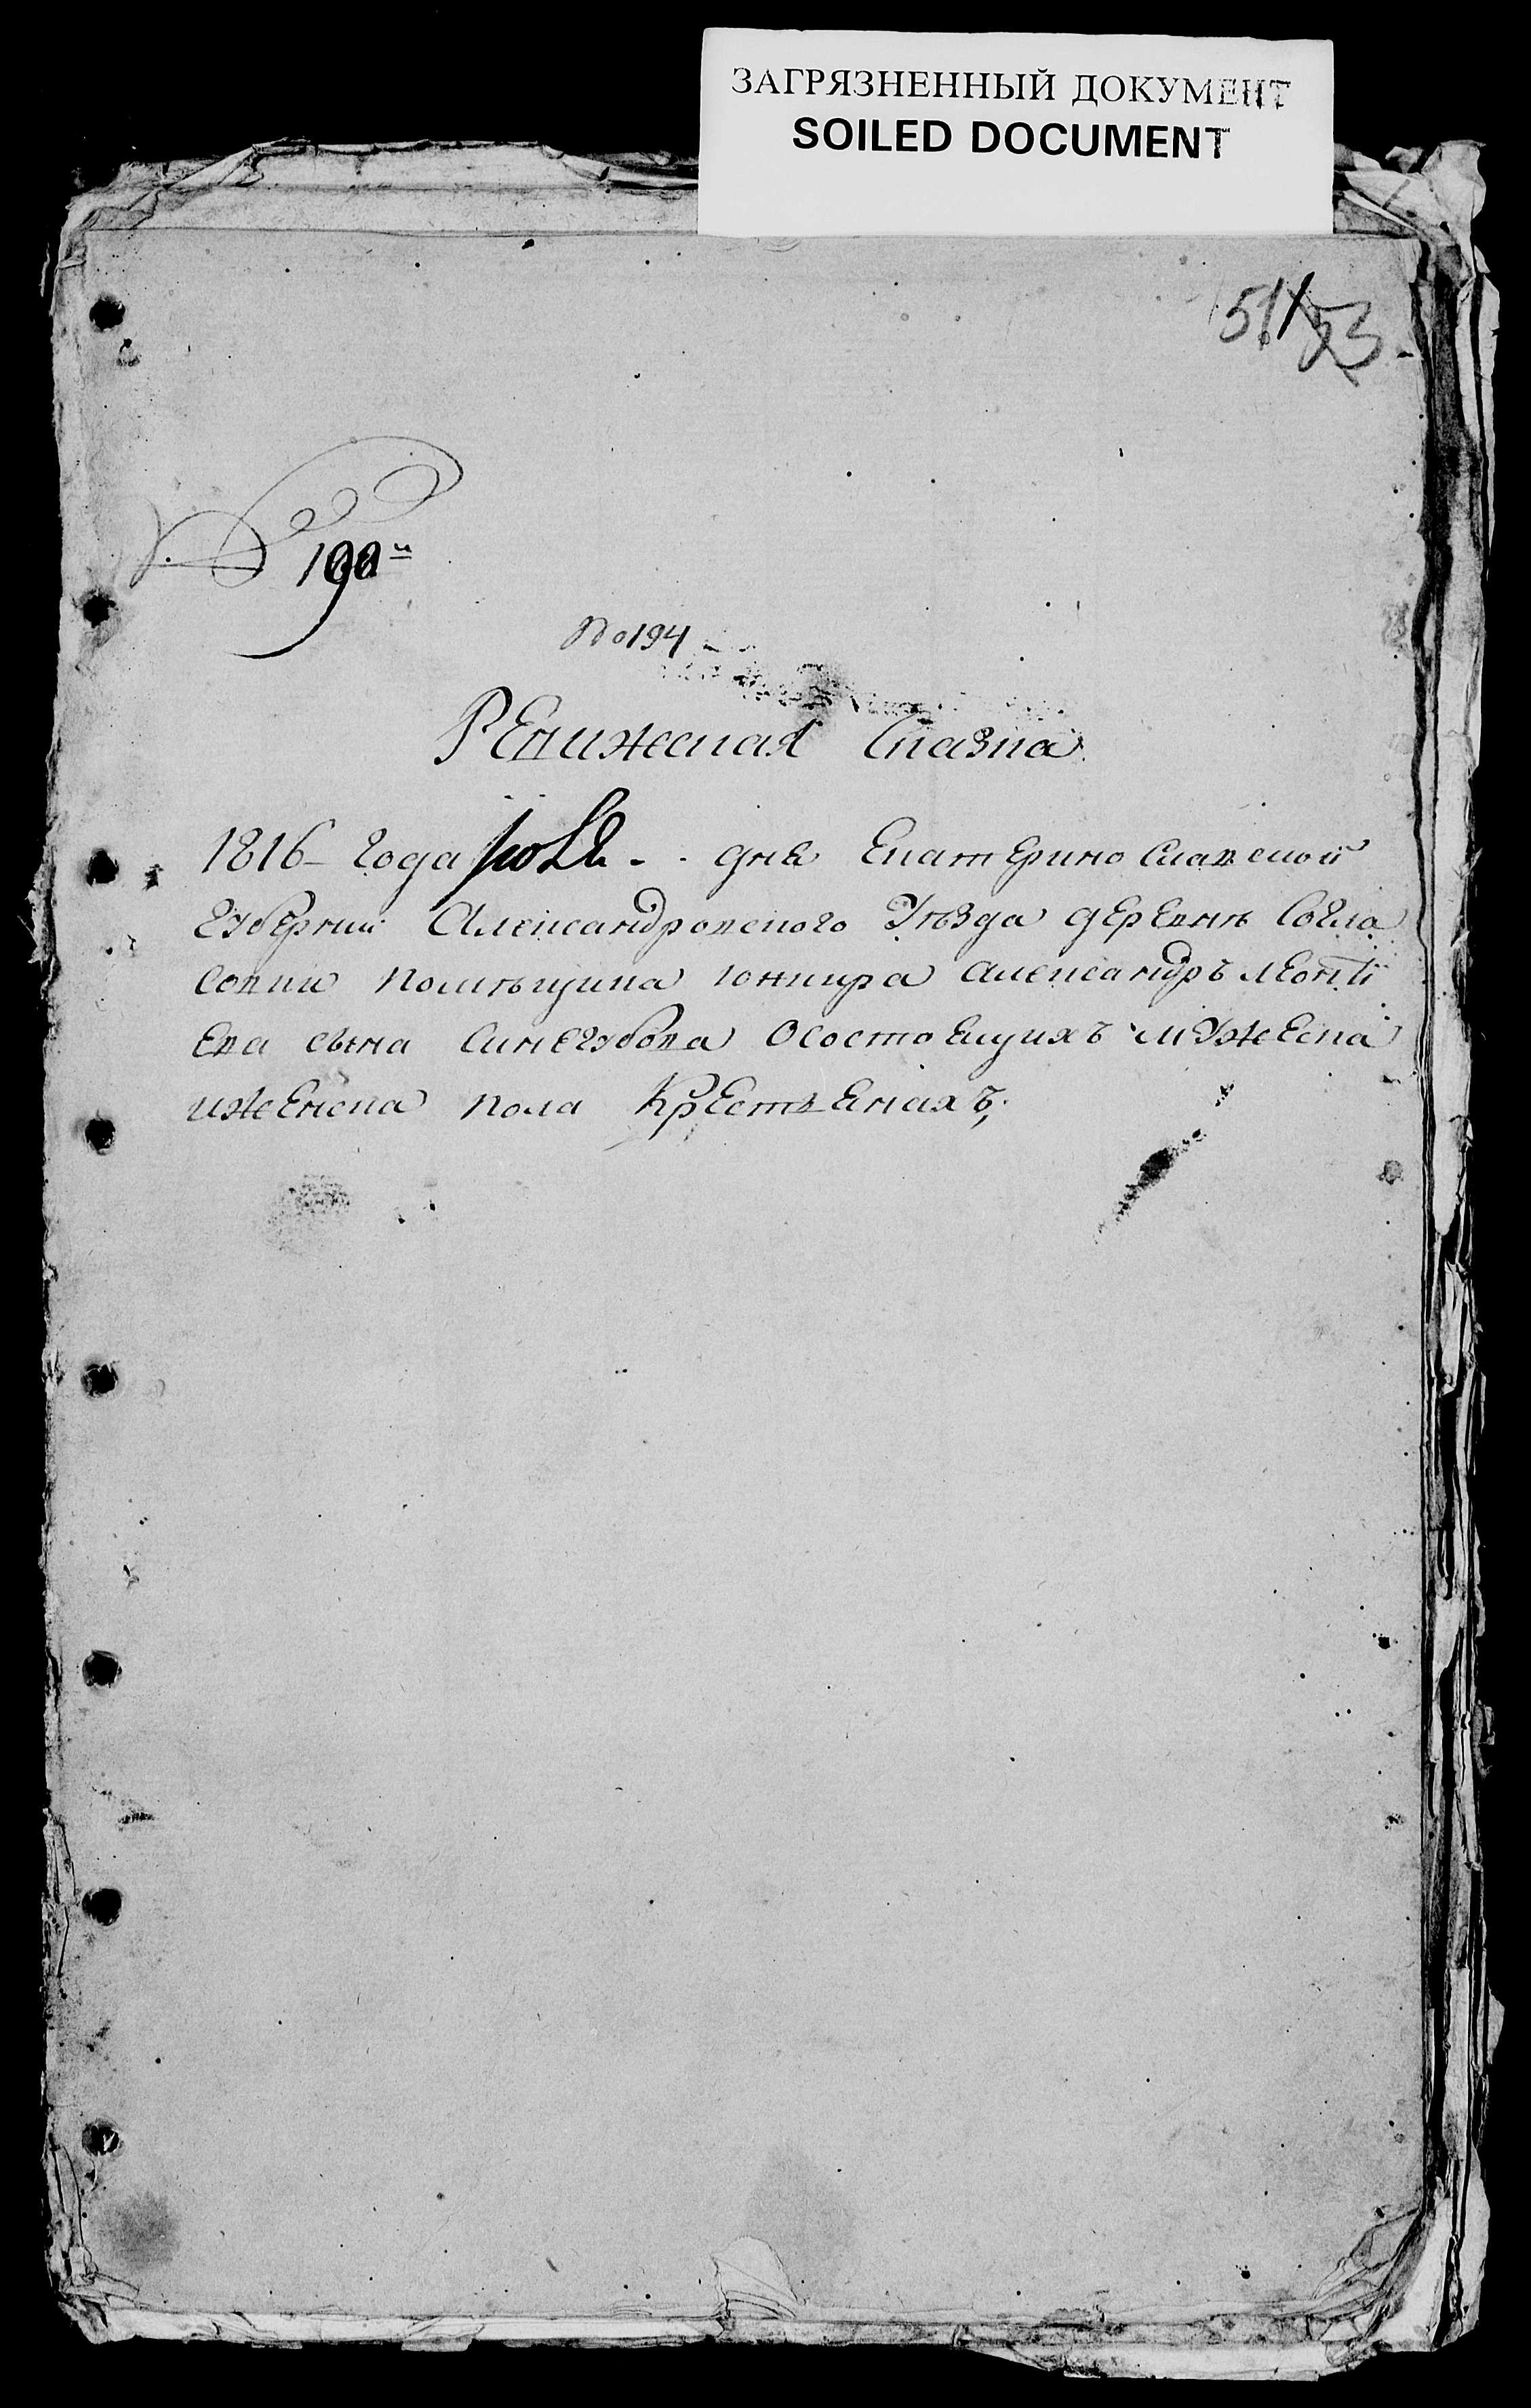 ЗАГРЯЗНЕННЫЙ ДОКУМЕНТ
SOILED DOCUMENT
51 53
190й
№ 194
Ревижская Сказка
1816 года июля дня Екатеринославской
губернии Александровского уезда деревнѣ Согла
совки помѣщика юнкира Александръ Леонтi
ева сына Синегубова О состоящихъ мужеска
и женска пола крестьянахъ,